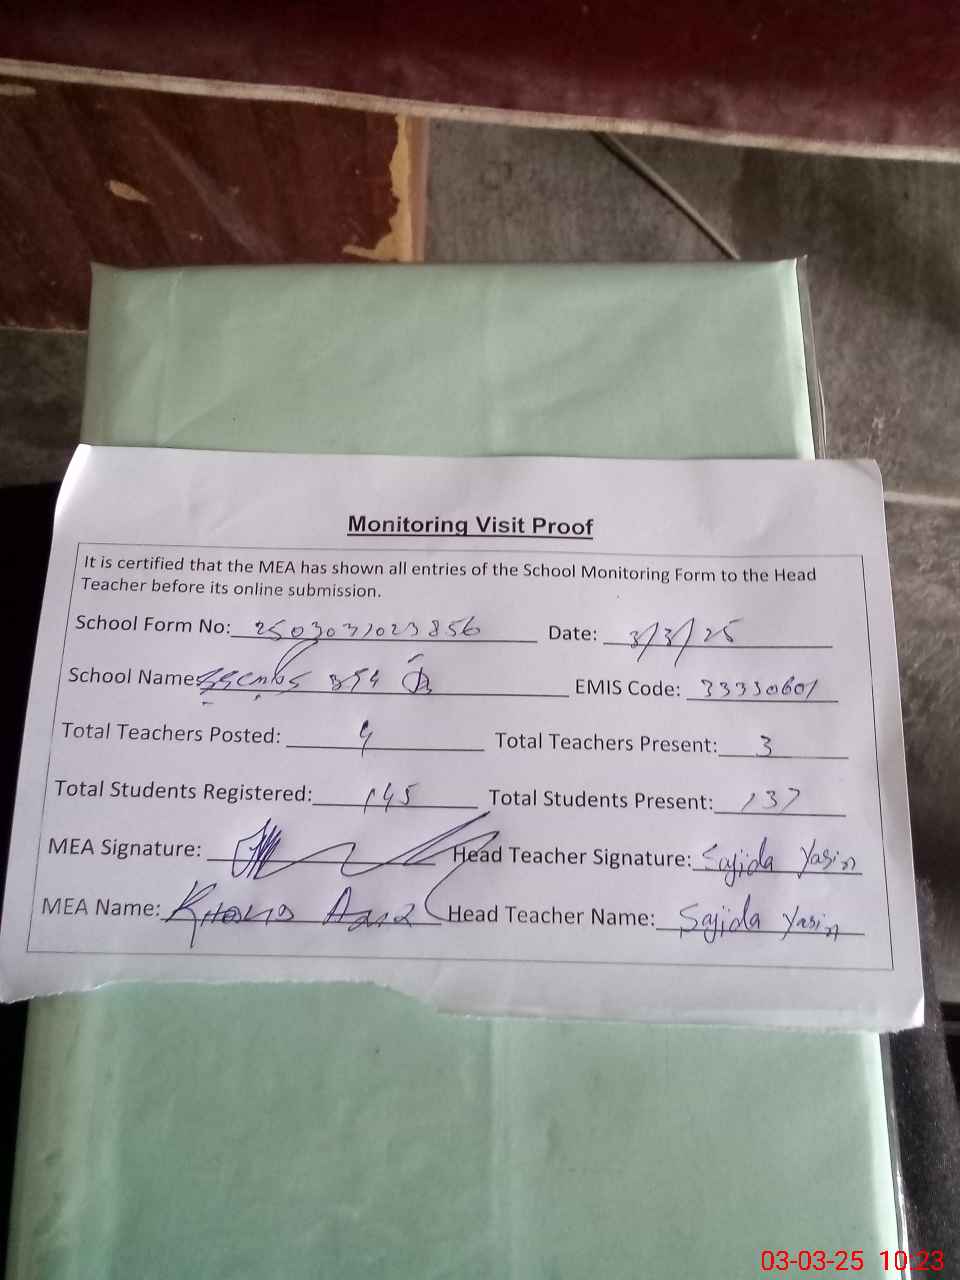 Monitoring Visit Proof
It is certified that the MEA has shown all entries of the School Monitoring Form to the Head
Teacher before its online submission.
School Form No: 2503031023856 Date: 3/3/25
School Name: 354
EMIS Code: 33330601
Total Teachers Posted: 4 Total Teachers Present: 3
Total Students Registered: 145 Total Students Present: 137
MEA Signature: Head Teacher Signature: Sajida Yasin
MEA Name: Head Teacher Name: Sajida Yasin
03-03-25 10:23